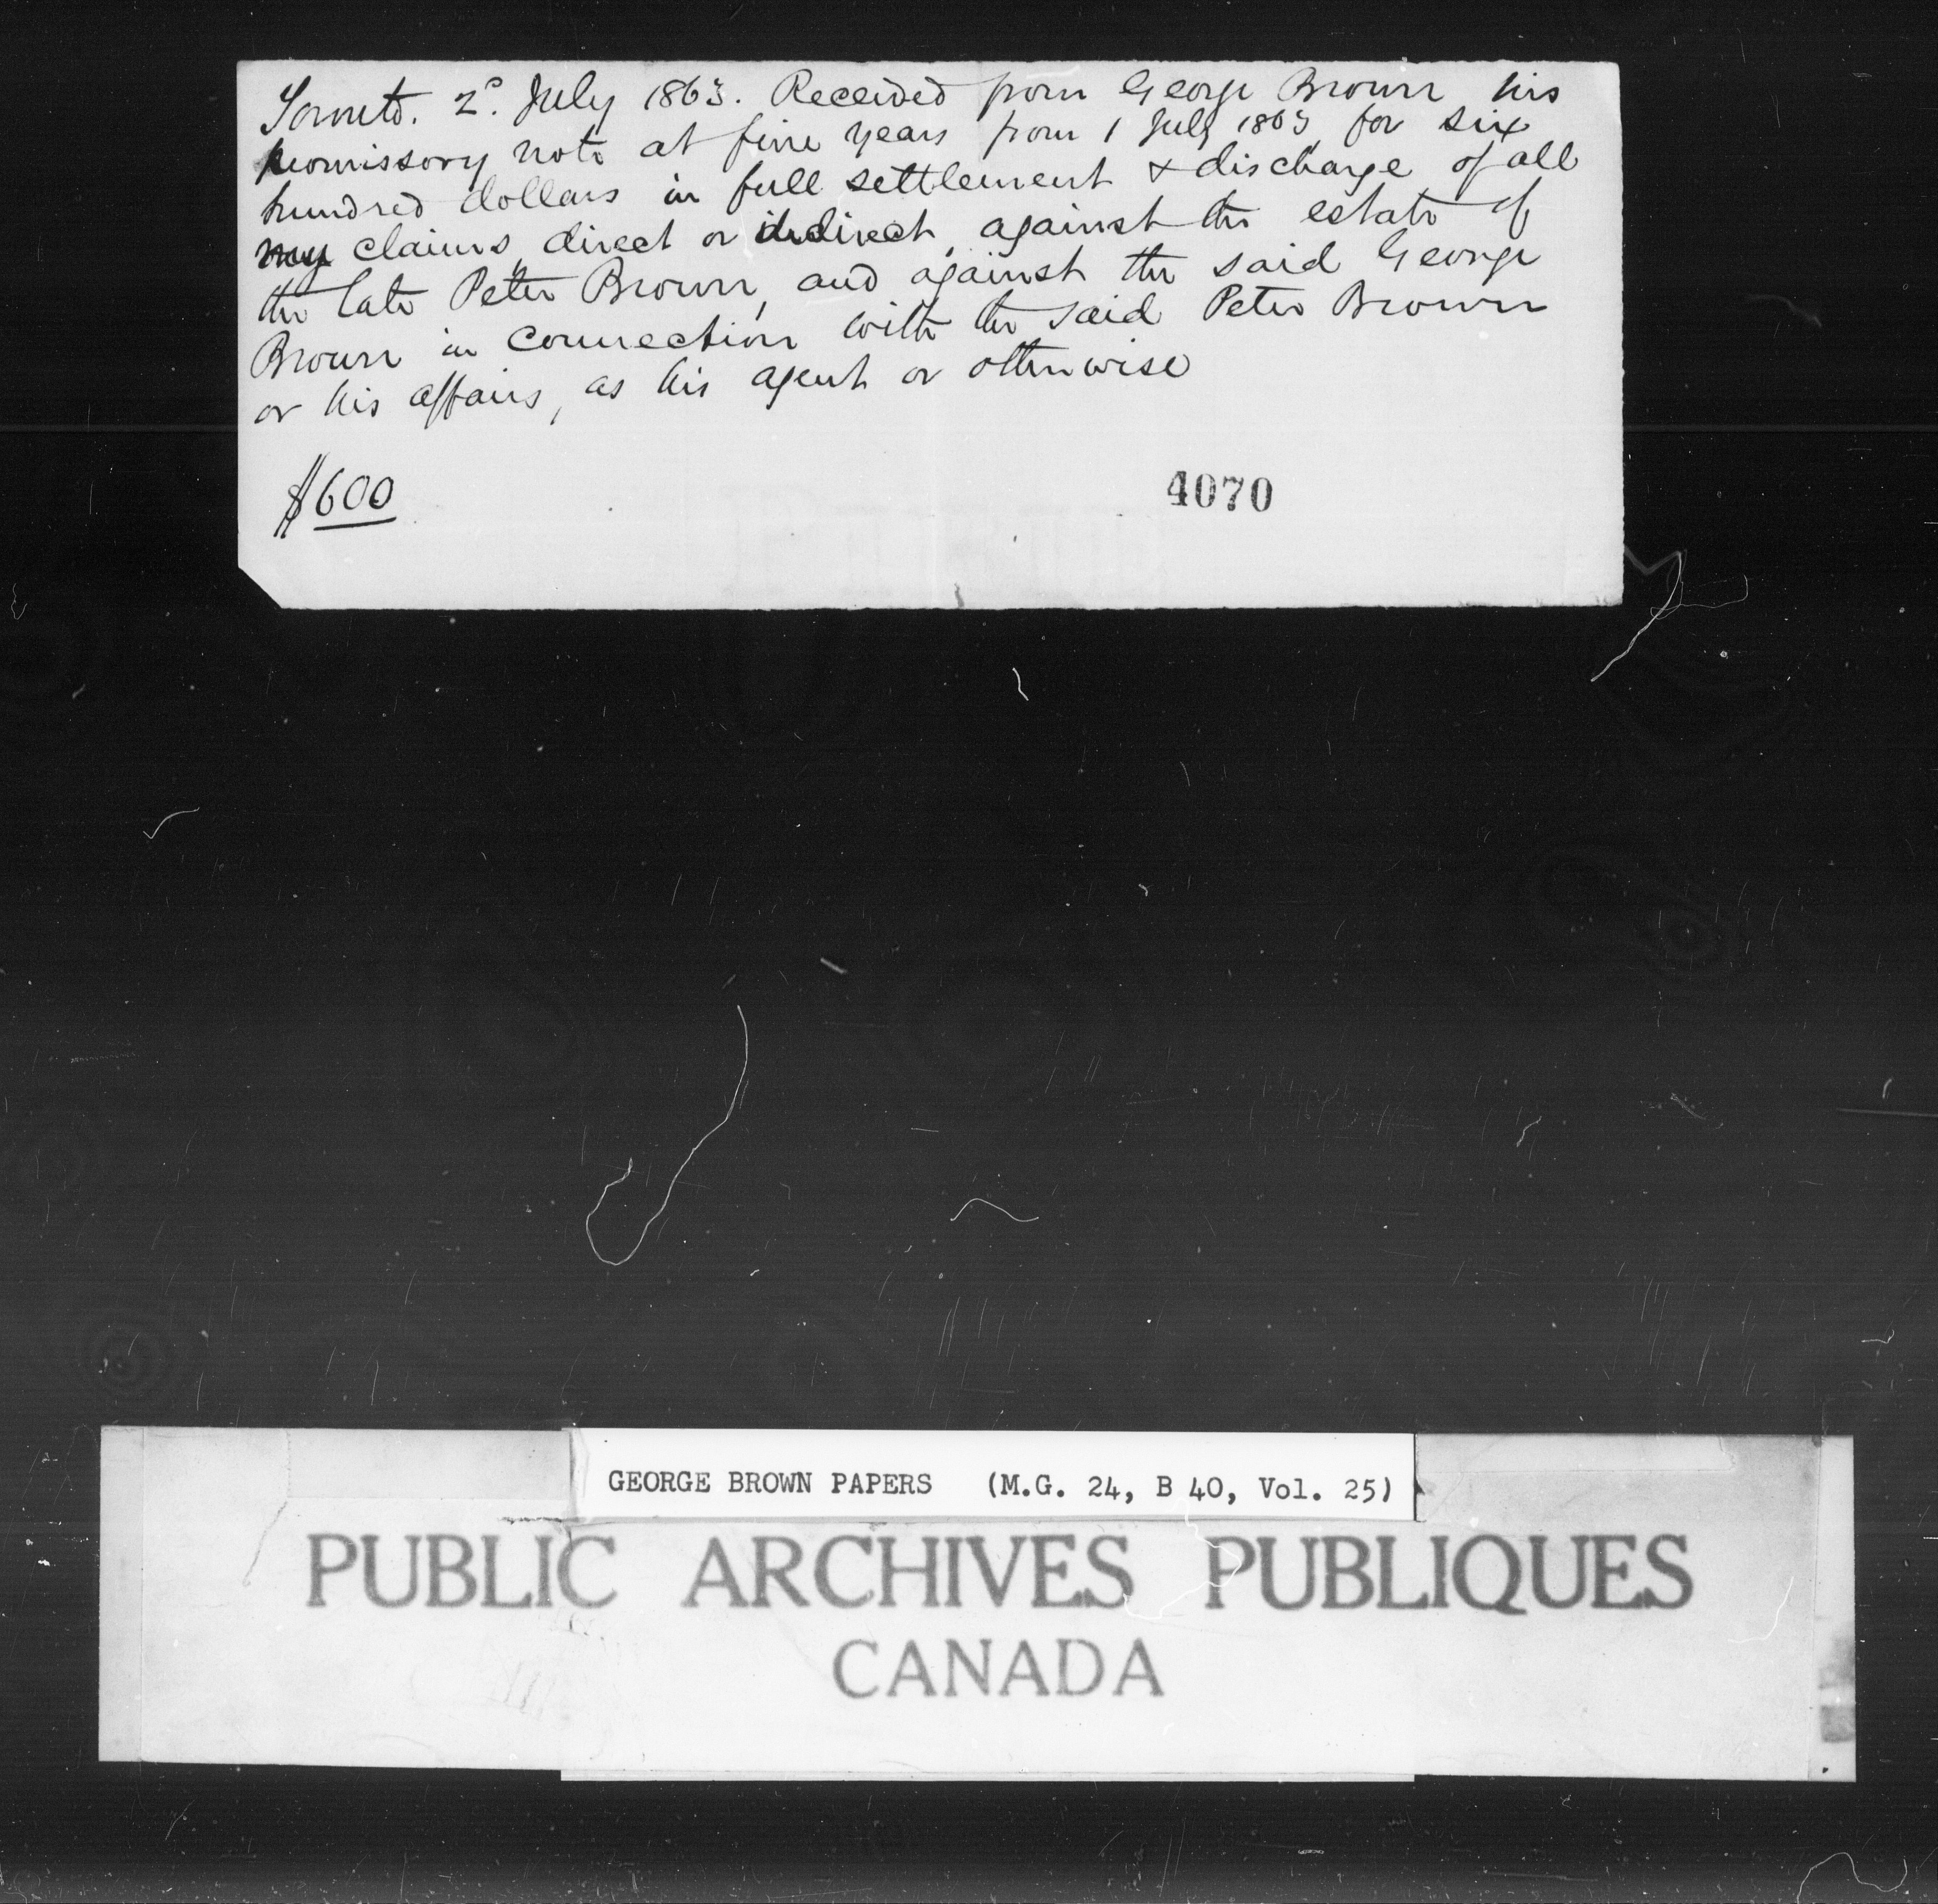 Toronto. 2d. July 1863. Received from George Brown his
promissory note at five years from 1 July 1863 for six
hundred dollars in full settlement & discharge of all
my claims, direct or indirect, against the estate of
the late Peter Brown, and against the said George
Brown in connection with the said Peter Brown
or his affairs, as his agent or otherwise
$600
4070
GEORGE BROWN PAPERS (M.G. 24, B 40, Vol. 25)
PUBLIC ARCHIVES PUBLIQUES
CANADA